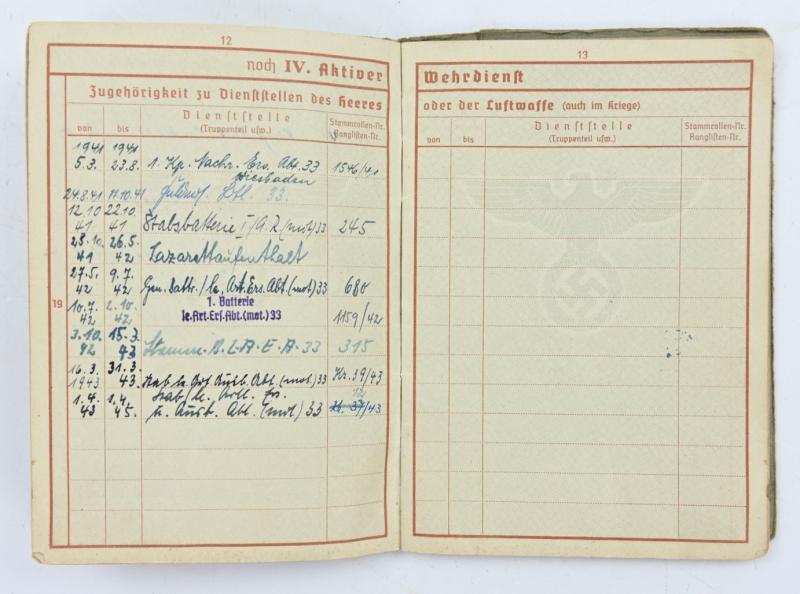 12
noch IV. Aktiver
Zugehörigkeit zu Dienststellen des Heeres
von
bis
Dienststelle
(Truppenteil usw.)
Stammrollen-Nr.
Ranglisten-Nr.
19
1941 1941
5.3. 23.8. 1. Kp. Nachr. Ers. Abt. 33 1546/41
Wiesbaden
24.8.41 11.10.41 33.
12.10 22.10.
41 41 Stabsbatterie I/A.R.(mot) 33 245
23.10. 26.5.
41 42 Lazarettaufenthalt
27.5. 9.7.
42 42 Gen. Battr./le. Art. Ers. Abt. (mot) 33 680
1. Batterie
10.7. 2.10. le.Art.Ers.Abt.(mot.) 33
42 42 1159/42
3.10. 15.3.
42 43 Stamm. 33 315
16.3. 31.3.
1943 43. Stab le. Art. Ausb. Abt. (mot) 33 Kr. 39/43
1.4. 1.4. Stab/le. Artl. Ers.
43 45. u. Ausb. Abt. (mot) 33 /43
13
Wehrdienst
oder der Luftwaffe (auch im Kriege)
von
bis
Dienststelle
(Truppenteil usw.)
Stammrollen-Nr.
Ranglisten-Nr.